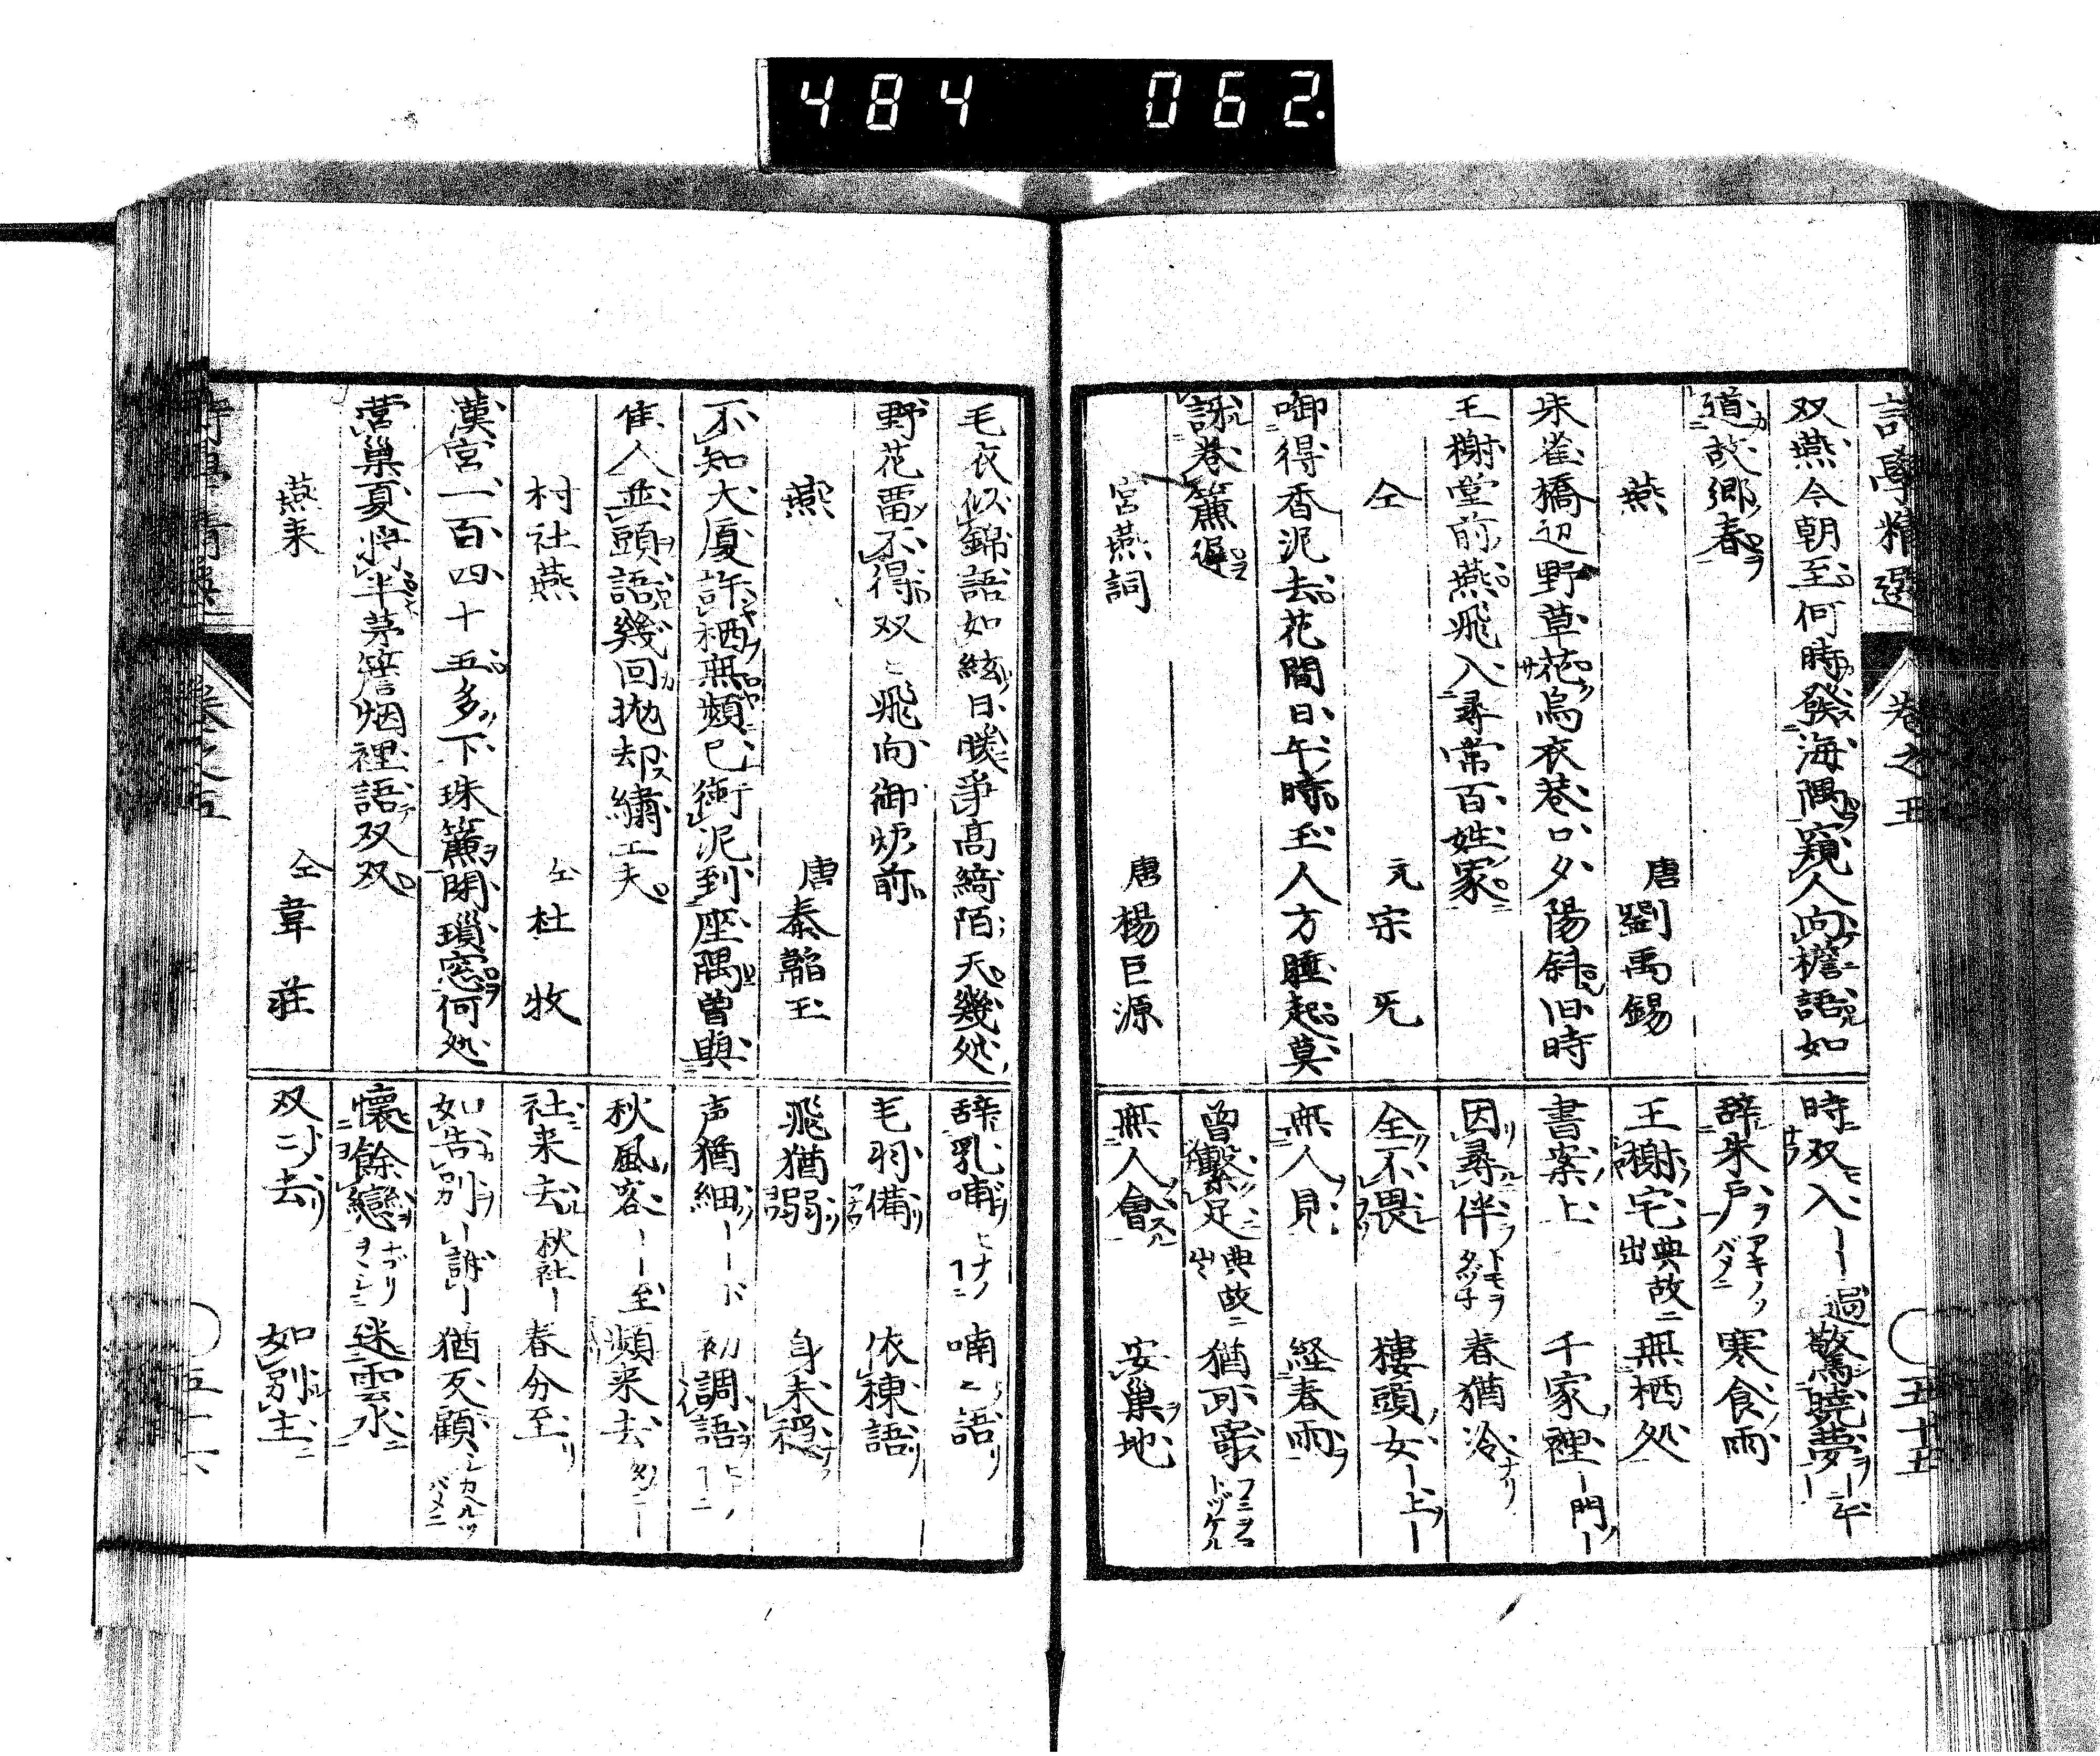 484 062.
詩學精選 卷之五 五十五
双燕今朝至何時發海隅窺人向檐語如
道故郷春
燕 唐 劉禹錫
朱雀橋辺野草花烏衣巷口夕陽斜旧時
王榭堂前燕飛入尋常百姓家
仝 元 宗旡
啣得香泥去花間日午時玉人方睡起莫
訝卷簾遅
宮燕詞 唐 楊巨源
時双入 過 驚曉夢
辞朱戸 寒食雨
王榭宅 典故ニ出 無栖処
書案上 千家裡 門
因尋伴 春猶冷
全不畏 樓頭女 上
無人見 経春雨
曽繫足 典故ニ出 猶可寄
無人會 安巣地
毛衣似錦語如絃日暖爭高綺陌天幾処
野花畱不得双〻飛向御炉前
燕 唐 秦韜玉
不知大廈許栖無頻已銜泥到座隅曽與
隹人並頭語幾回抛却繡工夫
村社燕 仝 杜牧
漢宮一百四十五多下珠簾閉瑣窓何処
営巣夏將半茅簷烟裡語双双
燕来 仝 韋荘
辞乳哺 喃〻語
毛羽備 依棟語
飛猶弱 身未穏
声猶細 初調語
秋風客 至 頻来去
社来去 秋社 春分至
如告別 訴 猶反顧
懐餘戀 迷雲水
双〻去 如別主
卷之五